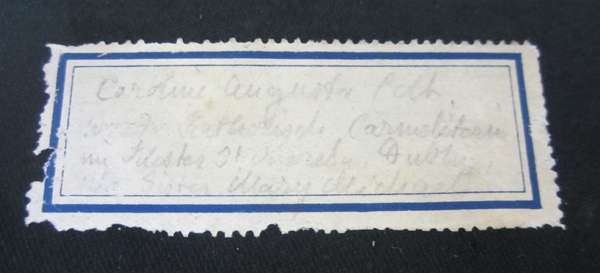 Caroline Augusta
wurde Katholische Carmeliterin
im Kloster St Dublin
als Sister Mary